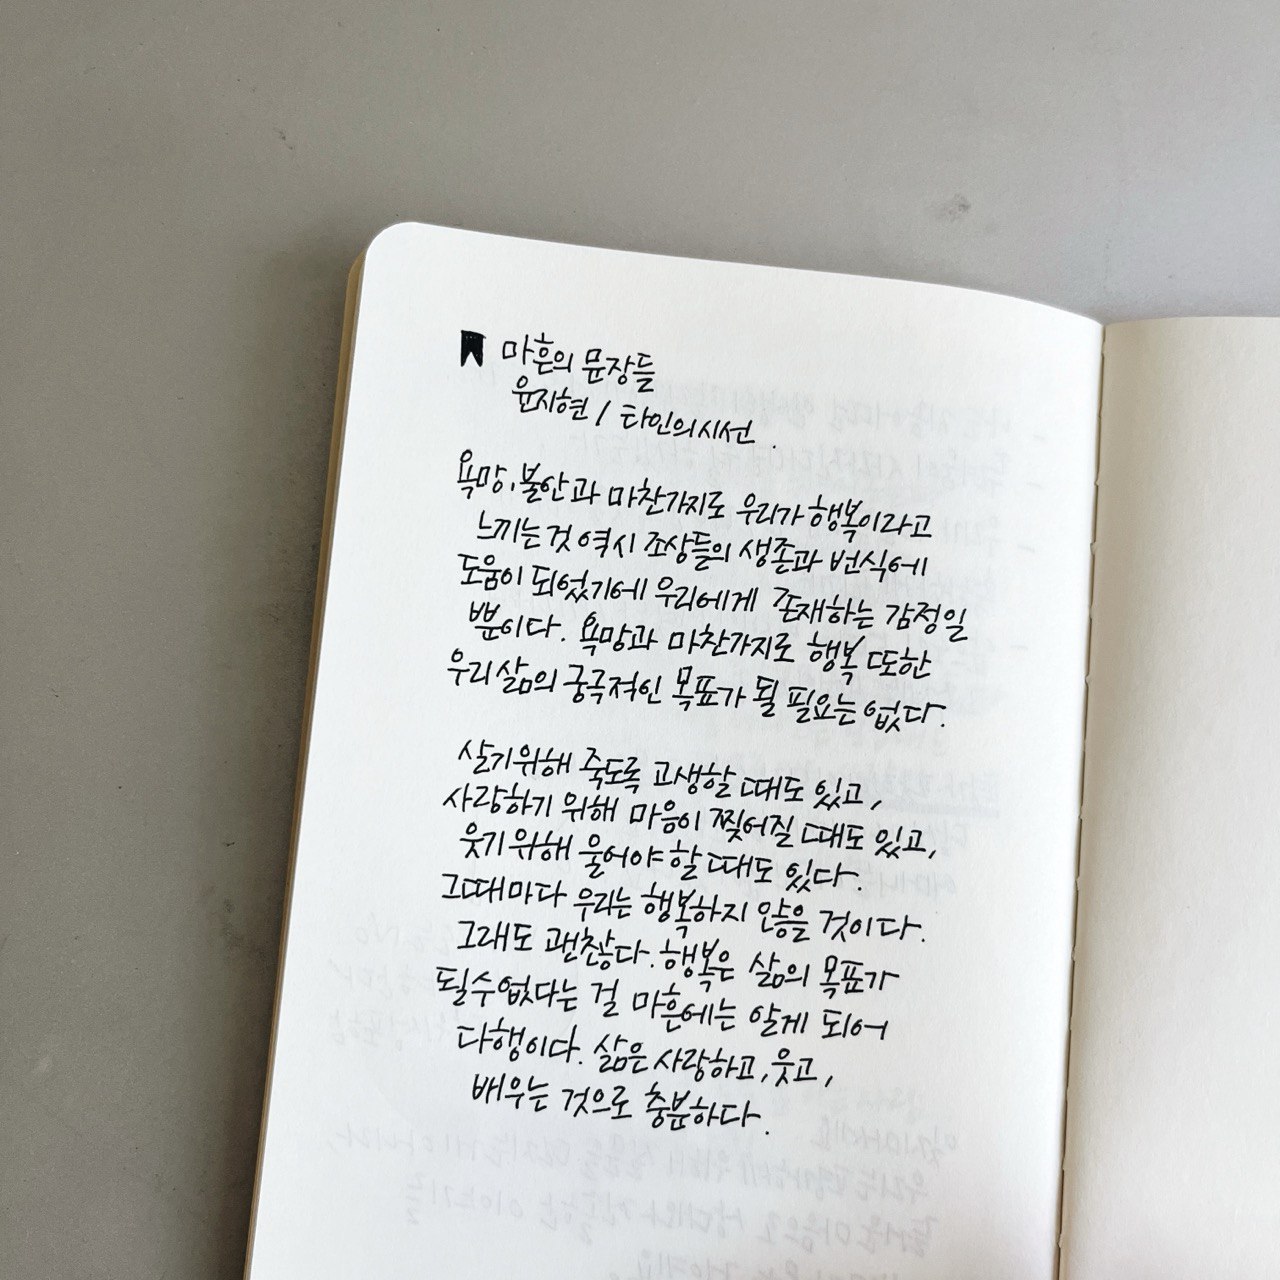 마흔의 문장들
윤지현 / 타인의시선
욕망, 불안과 마찬가지로 우리가 행복이라고
느끼는 것 역시 조상들의 생존과 번식에
도움이 되었기에 우리에게 존재하는 감정일
뿐이다. 욕망과 마찬가지로 행복 또한
우리 삶의 궁극적인 목표가 될 필요는 없다.
살기위해 죽도록 고생할 때도 있고,
사랑하기 위해 마음이 찢어질 때도 있고,
웃기위해 울어야 할 때도 있다.
그때마다 우리는 행복하지 않을 것이다.
그래도 괜찮다. 행복은 삶의 목표가
될 수 없다는 걸 마흔에는 알게 되어
다행이다. 삶은 사랑하고, 웃고,
배우는 것으로 충분하다.